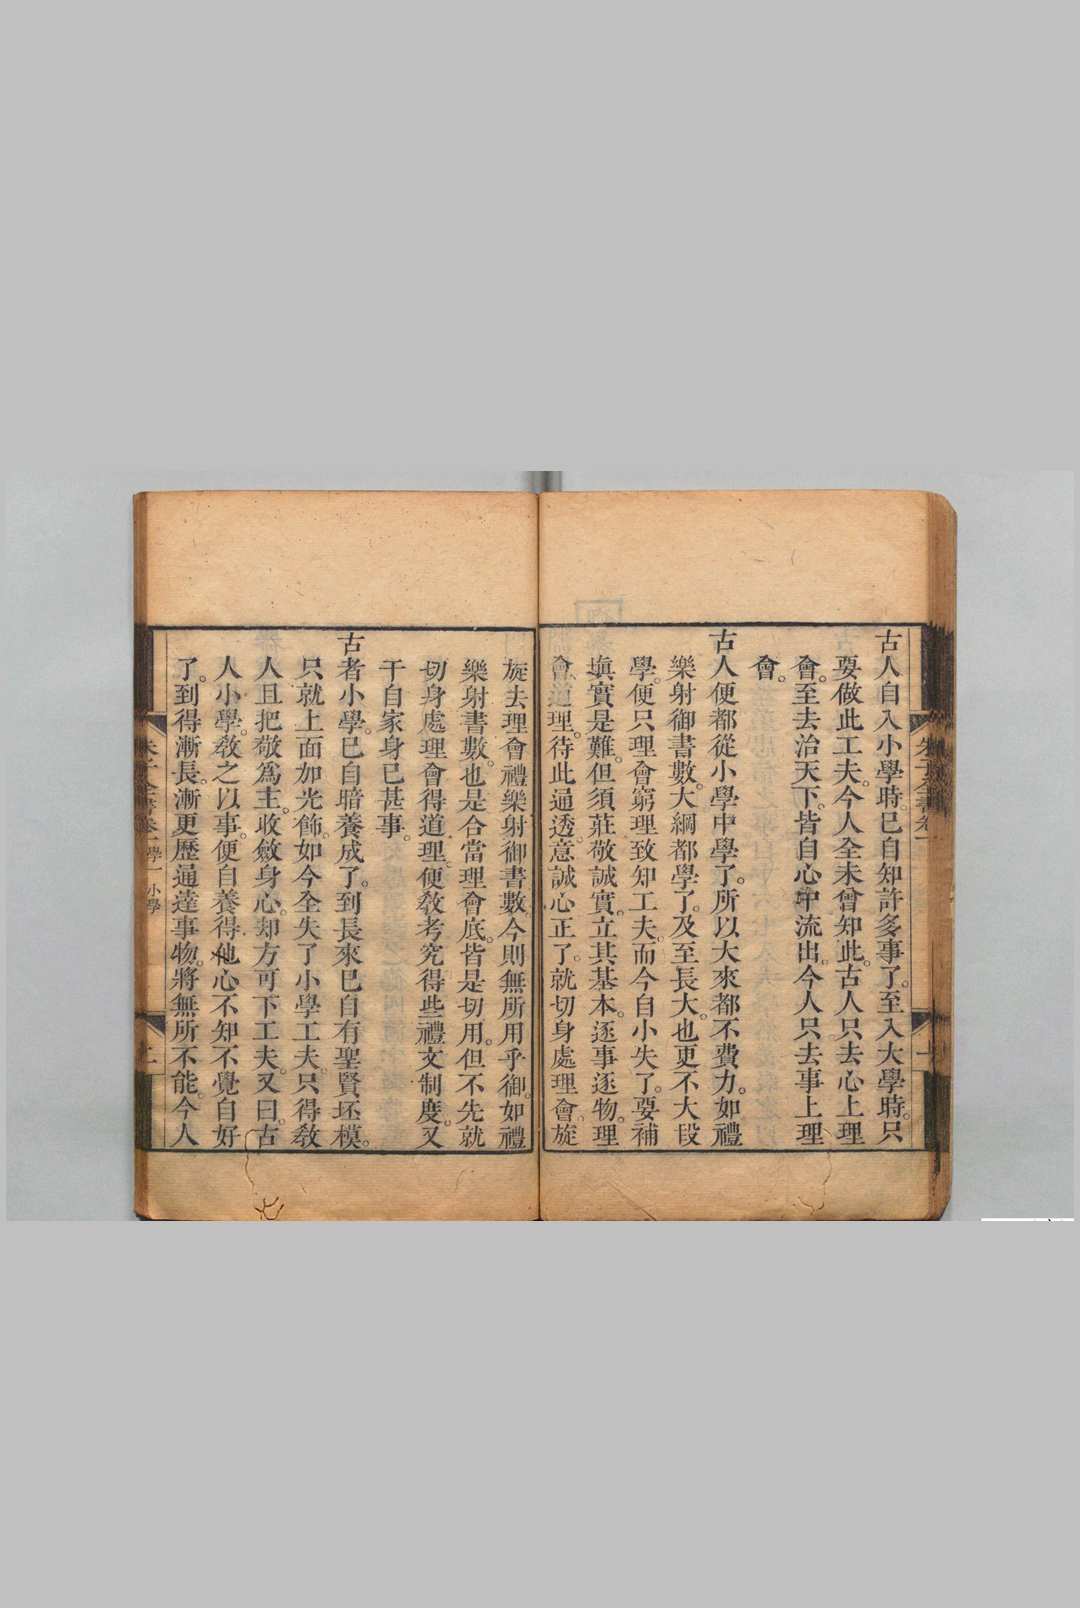 古人自入小學時。已自知許多事了。至入大學時。只
要做此工夫。今人全未曾知此。古人只去心上理
會。至去治天下。皆自心中流出。今人只去事上理
會。
古人便都從小學中學了。所以大來都不費力。如禮
樂射御書數。大綱都學了。及至長大。也更不大段
學。便只理會窮理致知工夫。而今自小失了。要補
塡實是難。但須莊敬誠實。立其基本。逐事逐物。理
會道理。待此通透。意誠心正了。就切身處理會。旋
旋去理會禮樂射御書數。今則無所用乎御。如禮
樂射書數。也是合當理會底。皆是切用。但不先就
切身處理會得道理。便敎考究得些禮文制度。又
干自家身已甚事。
古者小學。已自暗養成了。到長來已自有聖賢坯模。
只就上面加光飾。如今全失了小學工夫。只得敎
人且把敬爲主。收斂身心。却方可下工夫。又曰。古
人小學。敎之以事。便自養得他心不知不覺自好
了。到得漸長。漸更歷通達事物。將無所不能。今人
朱子全書卷一 學一 小學
二